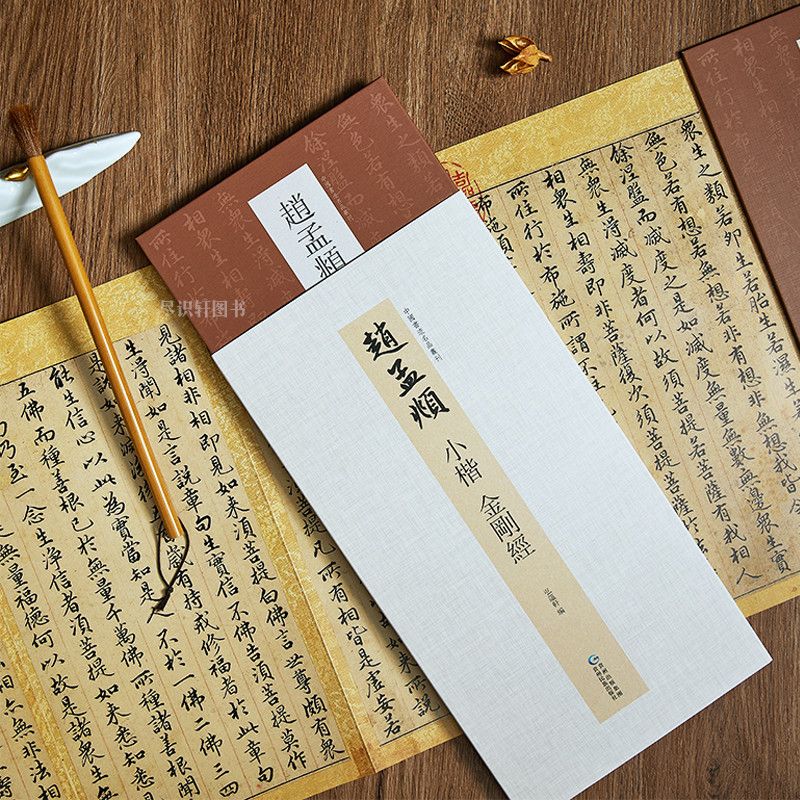 衆生之類若卵生若胎生若濕生若
無色若有想若無想若非有想非無想我皆
餘涅槃而滅度之如是滅度無量無數無邊衆生實
無衆生得滅度者何以故須菩提若菩薩有我相人
相衆生相壽者即非菩薩復次須菩提菩薩於
所住行於布施所謂不
布施須
趙孟頫
無色若有想
相衆生得滅
所住行於
中國書迹名品叢刊
趙孟頫
小楷 金剛經
弘蘊軒 編
菩提凡所有相皆是虛妄若
見諸相非相即見如來須菩提白佛言世尊頗有衆
生得聞如是言說章句生實信不佛告須菩提莫作
是說如來滅後
歲有持戒修福者於此章句
能生信心以此為實當知是人不於一佛二佛三四
五佛而種善根已於無量千萬佛所種諸善根聞
乃至一念生淨信者須菩提如來悉知悉見
無量福德何以故是諸衆生無
相亦無非法相
尽识轩图书